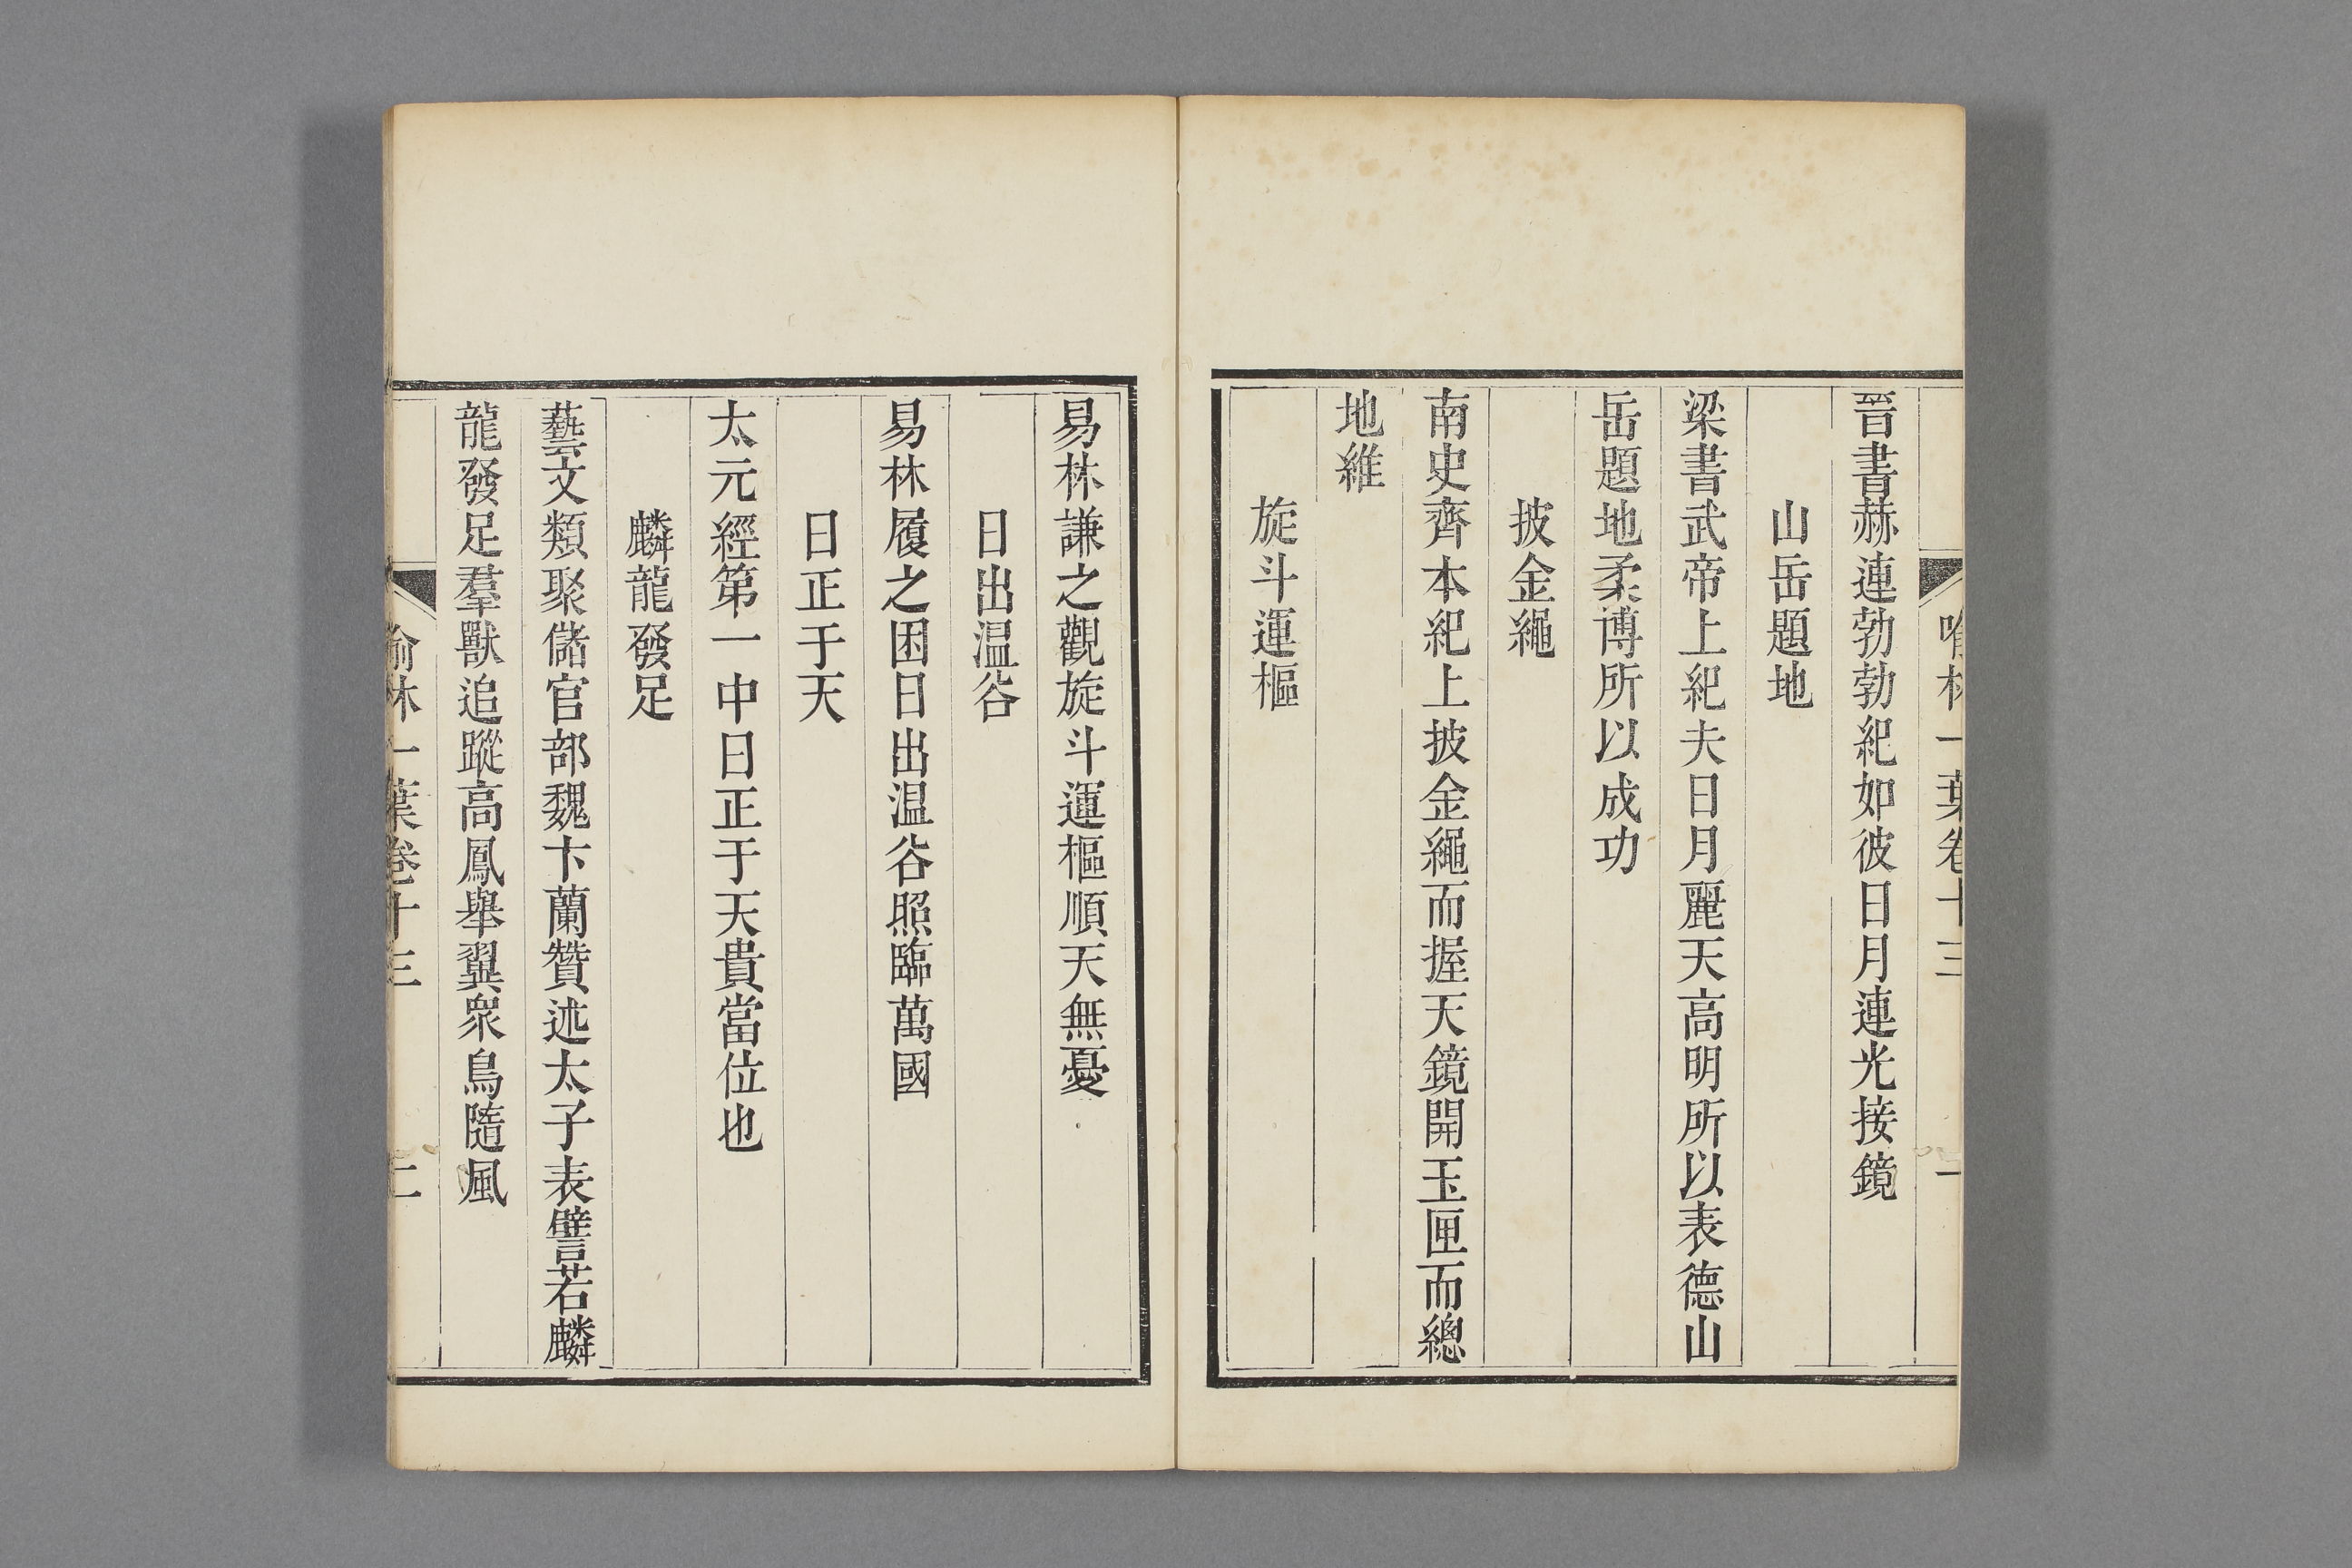 喻林一葉卷十三 一
晉書赫連勃勃紀如彼日月連光接鏡
山岳題地
梁書武帝上紀夫日月麗天高明所以表德山
岳題地柔博所以成功
披金繩
南史齊本紀上披金繩而握天鏡開玉匣而總
地維
旋斗運樞
易林謙之觀旋斗運樞順天無憂
日出温谷
易林履之困日出温谷照臨萬國
日正于天
太元經第一中日正于天貴當位也
麟龍發足
藝文類聚儲宮部魏卞蘭贊述太子表譬若麟
龍發足羣獸追蹤高鳳舉翼衆鳥隨風
喻林一葉卷十三 二